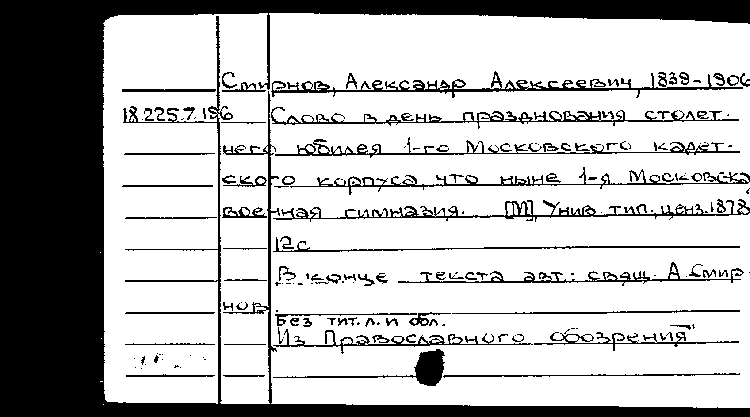 Смирнов, Александр Алексеевич, 1839-1906
18.225.7.196 Слово в день празднования столет-
него юбилея 1-го Московского кадет-
ского корпуса, что ныне 1-я Московска
военная гимназия. [М], Унив. тип., ценз. 1878
12с
В конце текста авт.: свящ. А. Смир-
нов.
Без тит. л. и обл.
"Из Православного обозрения"